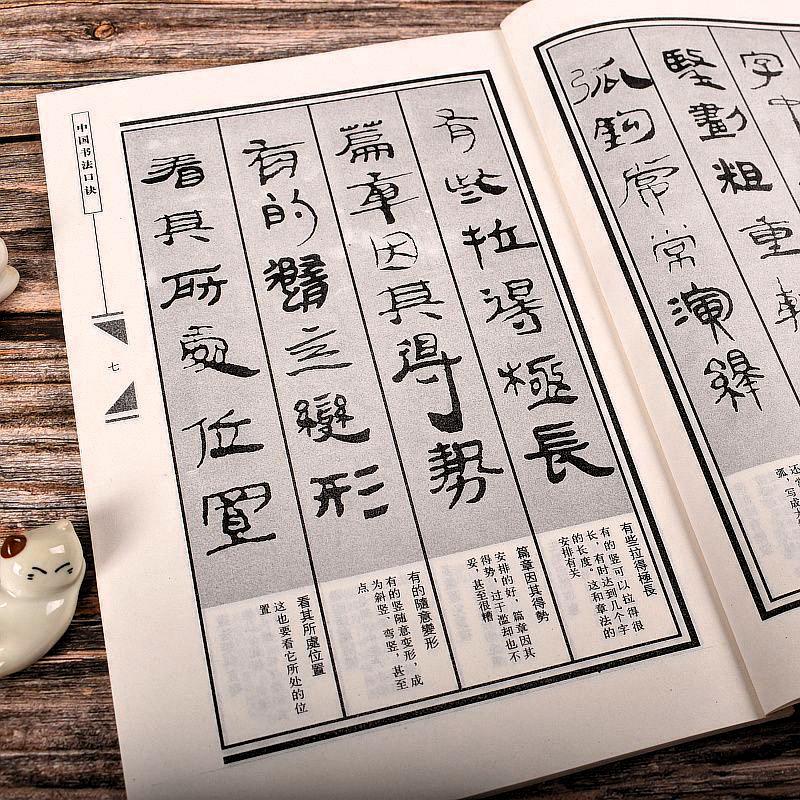 字中
豎劃粗重
弧鉤常常演繹
弧，写成
有些拉得極長
篇章因其得勢
有的隨意變形
看其所處位置
有些拉得極長
有的竖可以拉得很
长，有时达到几个字
的长度。这和章法的
安排有关
篇章因其得勢
安排的好，篇章因其
得势，过于滥却也不
妥，甚至很糟
有的隨意變形
有的竖随意变形，成
为斜竖、弯竖，甚至
点
看其所處位置
这也要看它所处的位
置
中国书法口诀
七